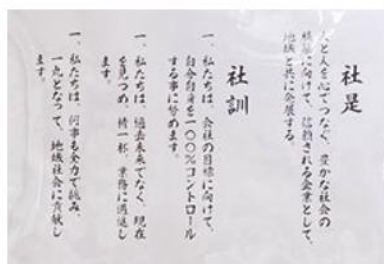 社是
人と人を心でつなぐ、豊かな社会の
構築に向けて、信頼される企業として、
地域と共に発展する。
社訓
一、私たちは、会社の目標に向けて、
自分自身を一〇〇%コントロール
する事に努めます。
一、私たちは、過去未来でなく、現在
を見つめ、精一杯、業務に邁進し
ます。
一、私たちは、何事も全力で挑み、
一丸となって、地域社会に貢献し
ます。